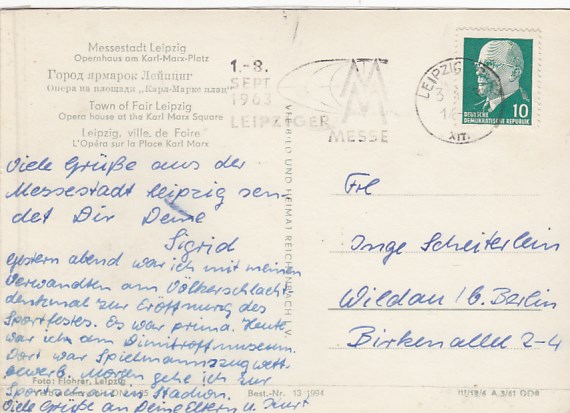 Messestadt Leipzig
Opernhaus am Karl-Marx-Platz
Город ярмарок Лейпциг
Опера на площади „Карл-Маркс плац“
Town of Fair Leipzig
Opera house at the Karl Marx Square
Leipzig, ville de Foire
L'Opéra sur la Place Karl Marx
1.-8.
SEPT.
1963
LEIPZIGER
MESSE
MM
LEIPZIG
XII.
10
DEUTSCHE
DEMOKRATISCHE REPUBLIK
Viele Grüße aus der
Messestadt Leipzig sen-
det Dir Deine
Sigrid
Gestern abend war ich mit meinen
Verwandten am Völkerschlacht
denkmal zur Eröffnung des
Sportfestes. Es war prima. Heute
war ich im Dimitroffmuseum.
Dort war Spielmannszugwett-
bewerb. Morgen gehe ich zur
Sportschau in Stadion.
Viele Grüße an Deine Eltern u.
Foto: Flohrer, Leipzig
VERLAG BILD UND HEIMAT REICHENBACH I. V.
Best.-Nr. 13 1994
III/18/6 A 3/61 DDR
Frl
Inge Scheiterlein
Wildau / b. Berlin
Birkenallee 2-4